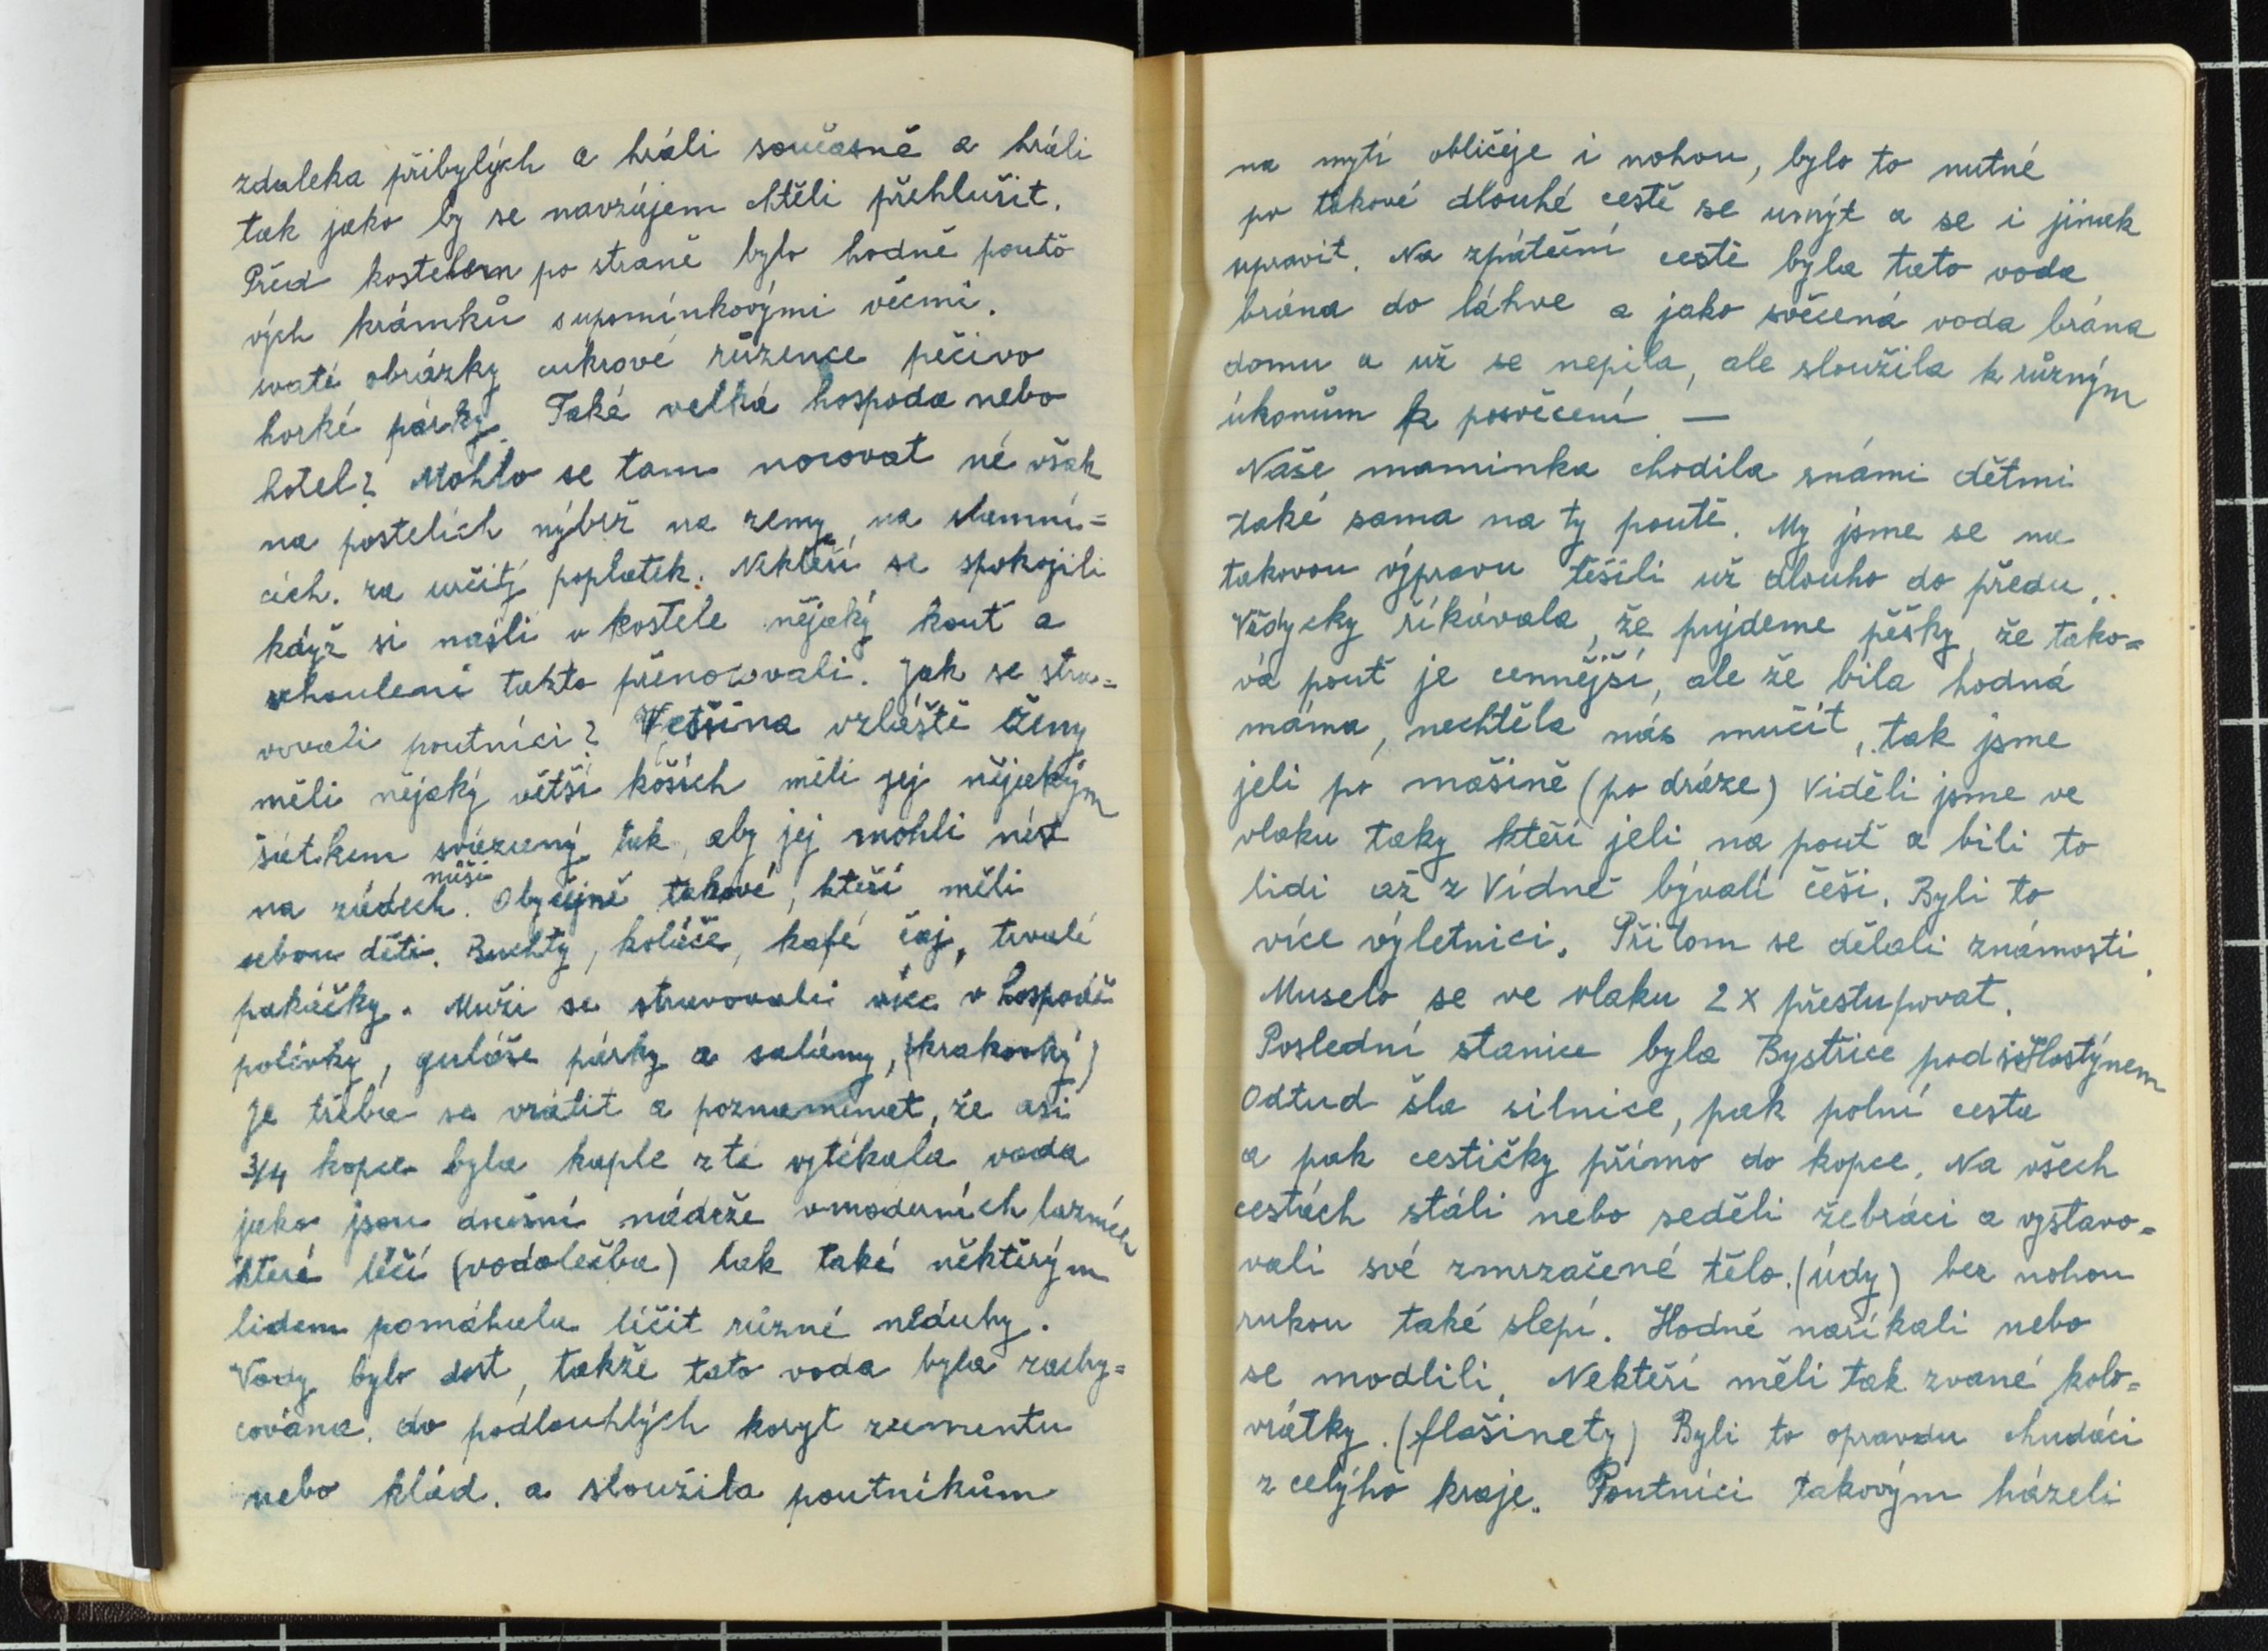 zdaleka přibylých a hráli současně a hráli
tak jako by se navzájem chtěli přehlušit.
Před kostelem po straně bylo hodně pouťo
vých krámků supomínkovými věcmi.
svaté obrázky cukrové růžence pečivo
horké párky. Také velká hospoda nebo
hotel? Mohlo se tam nocovat né však
na postelích nýbrž na zemy na slamní=
cích. za určitý poplatek. Nekteří se spokojili
když si našli v kostele nějaký kout a
schouleni takto přenocovali. Jak se stra=
vovali poutníci? Vetšina vzláště ženy
měli nějaký větší koších měli jej nějakým
šátkem svázaný tak, aby jej mohli nést
na zádech. nůši Obyčejně takové, kteří měli
sebou děti. Buchty, koláče, kafé čaj, trvalé
pakáčky. Muži se stravovali více v hospodě
polévky, guláše párky a salámy, (krakovký)
Je třeba se vrátit a poznamenat, že asi
3/4 kopce byla kaple z té vytékala voda
jako jsou dnešní nádrže vmoderních lazních
které léčí (vodoléčba) tak také některým
lidem pomáhala léčit různé neduhy.
Vody bylo dost, takže tato voda byla zachy=
cována. do podlouhlých koryt zcementu
nebo klád. a sloužila poutníkům
na mytí obličeje i nohou, bylo to nutné
po takové dlouhé cestě se umýt a se i jinak
upravit. Na zpáteční cestě byla tato voda
brána do láhve a jako svěcená voda brána
domu a už se nepila, ale sloužila k různým
úkonům k posvěcení. —
Naše maminka chodila snámi dětmi
také sama na ty poutě. My jsme se na
takovou výpravu těšili už dlouho do předu.
Vždycky říkávala, že pujdeme pěšky, že tako=
vá pouť je cennější, ale že bila hodná
máma, nechtěla nás mučit, tak jsme
jeli po mašině (po dráze) Viděli jsme ve
vlaku taky kteří jeli na pouť a bili to
lidi až z Vídně bývalí češi. Byli to
více výletnici. Přitom se dělali známosti.
Muselo se ve vlaku 2 x přestupovat.
Poslední stanice byla Bystřice pod Hostýnem
Odtud šla silnice, pak polní cesta
a pak cestičky přímo do kopce. Na všech
cestách stáli nebo seděli žebráci a vystavo=
vali své zmrzačené tělo. (údy) bez nohou
rukou také slepí. Hodně naříkali nebo
se modlili. Nekteří měli tak zvané kolo=
vrátky. (flašinety) Byli to opravdu chudáci
z celýho kraje. Poutníci takovým házeli